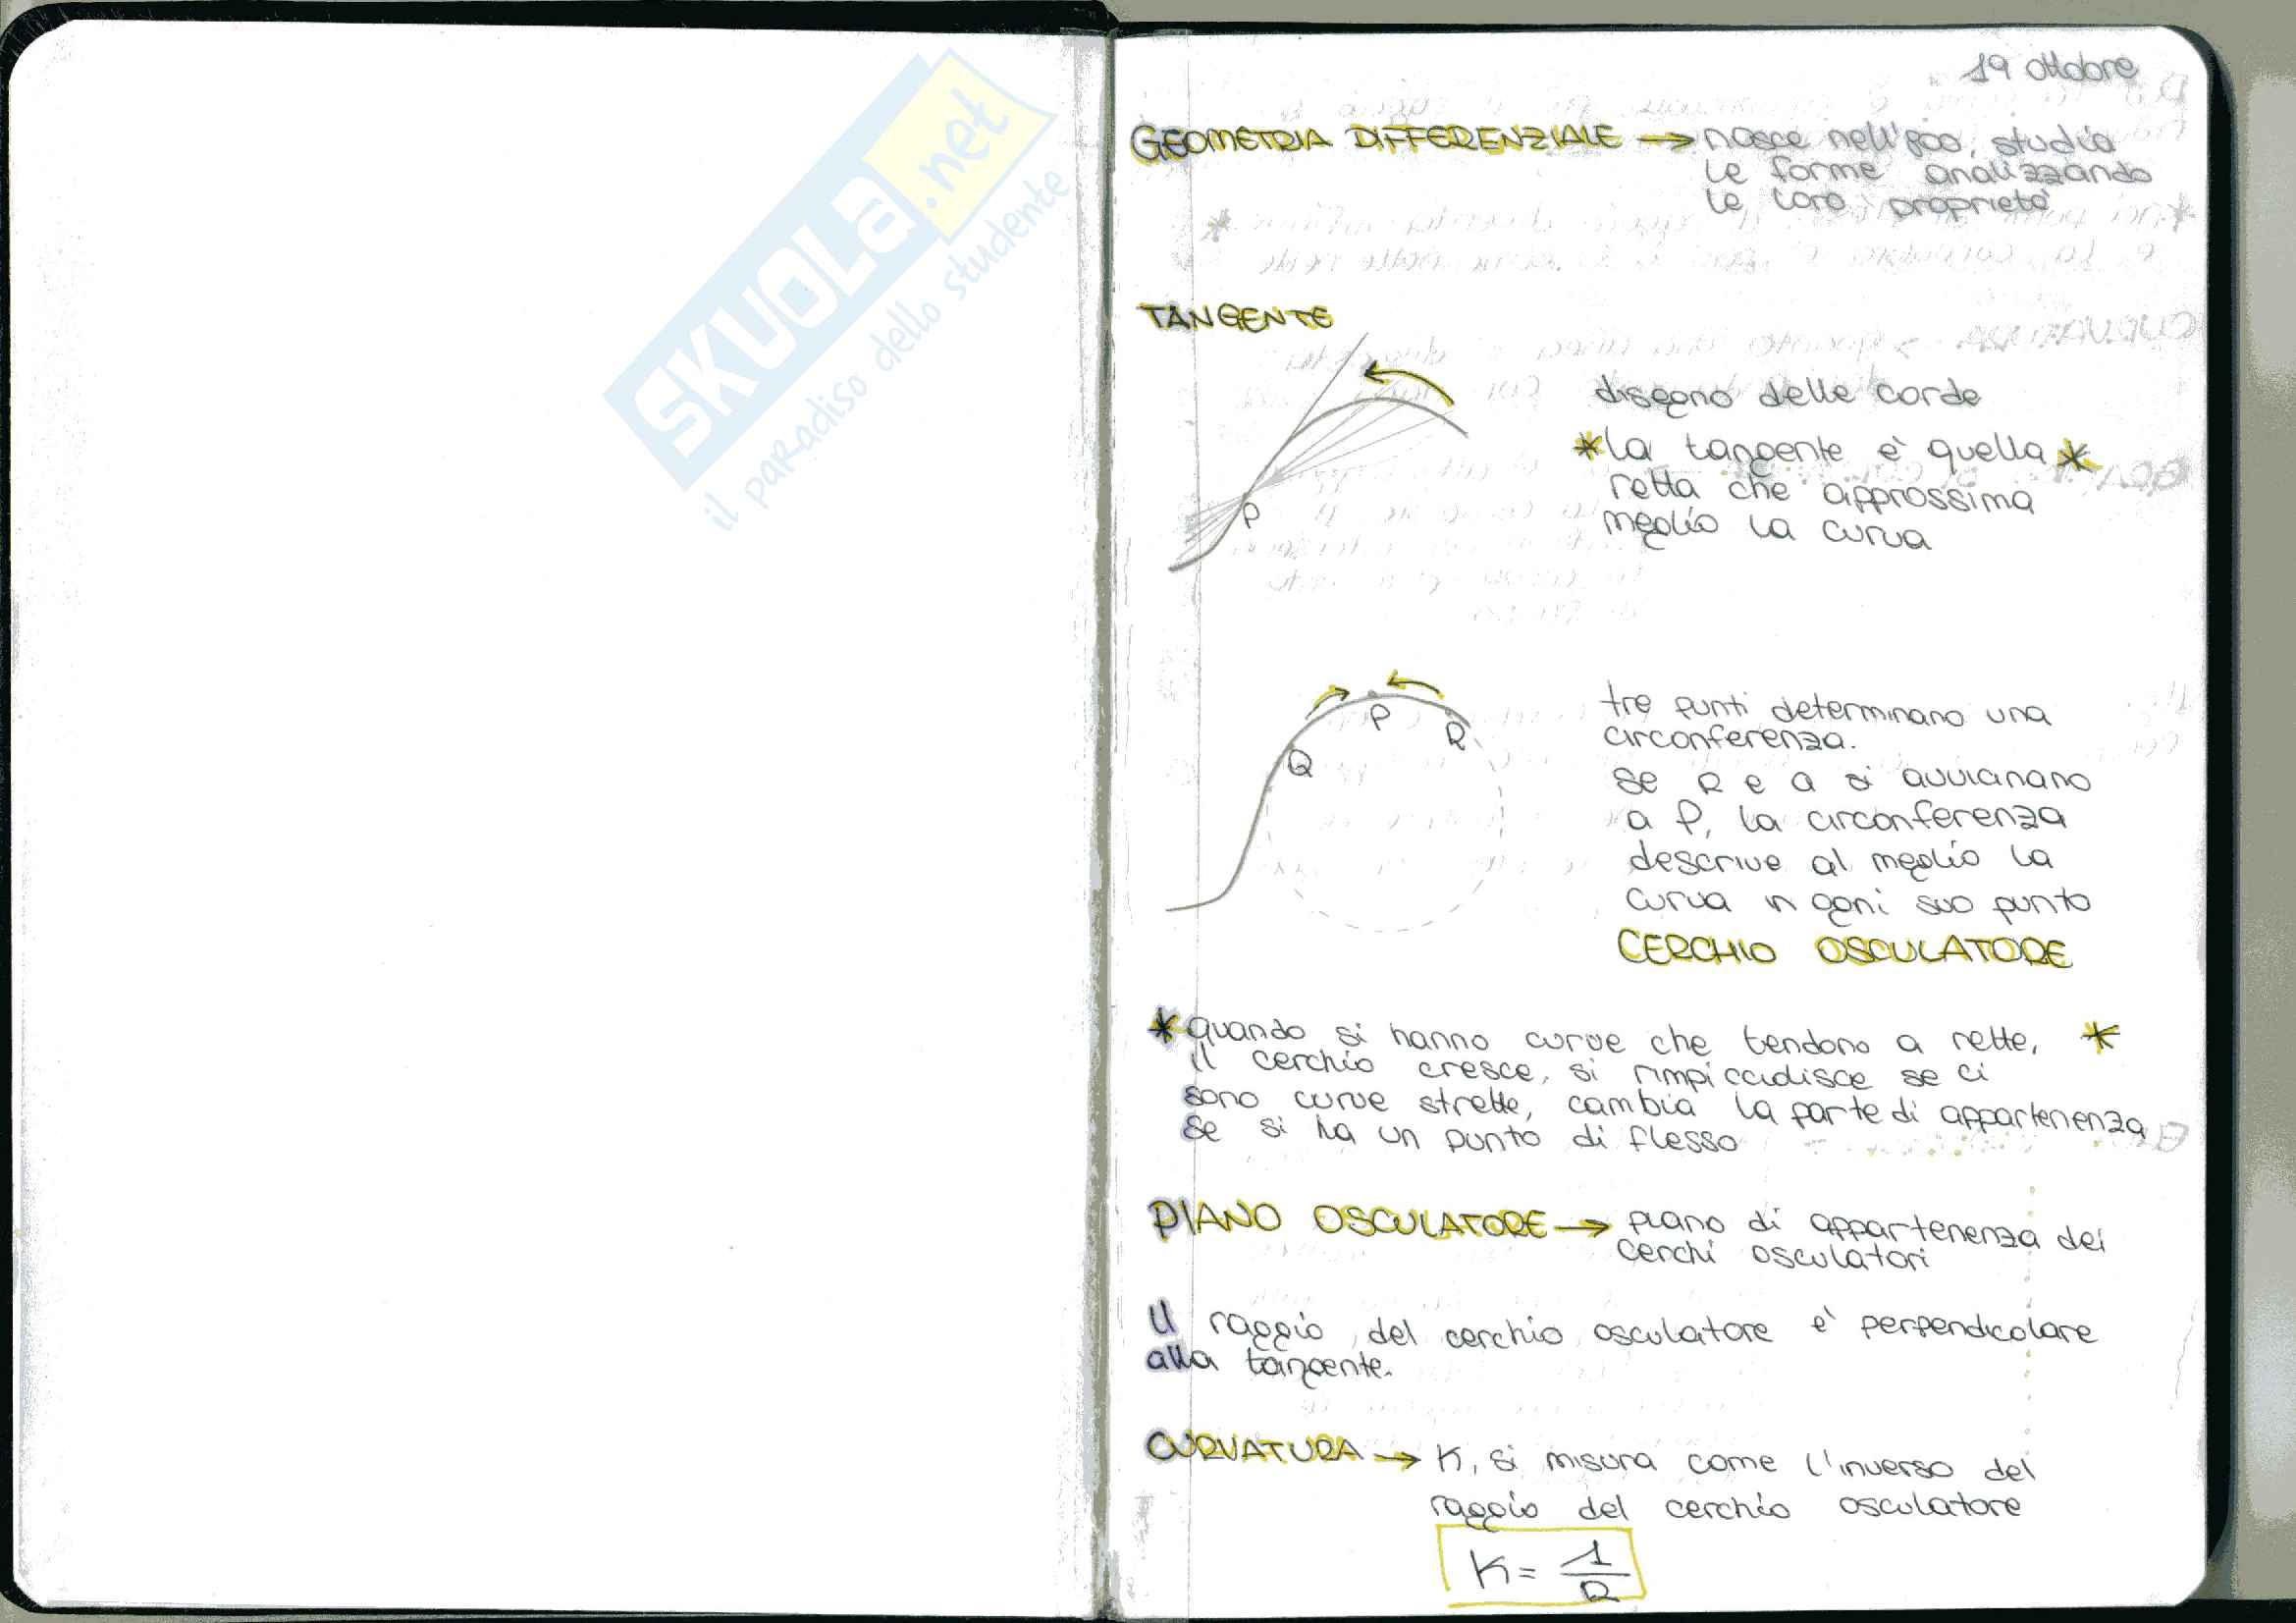 SKUOLA.net
il paradiso dello studente
19 ottobre
GEOMETRIA DIFFERENZIALE → nasce nell'800, studia
le forme analizzando
le loro proprietà
TANGENTE
disegno delle corde
*la tangente è quella*
retta che approssima
meglio la curva
P
tre punti determinano una
circonferenza.
se R e Q si avvicinano
a P, la circonferenza
descrive al meglio la
curva in ogni suo punto
CERCHIO OSCULATORE
P
R
Q
*quando si hanno curve che tendono a rette, *
il cerchio cresce, si rimpicciolisce se ci
sono curve strette, cambia la parte di appartenenza
se si ha un punto di flesso
PIANO OSCULATORE → piano di appartenenza dei
cerchi osculatori
Il raggio del cerchio osculatore è perpendicolare
alla tangente.
CURVATURA → K, si misura come l'inverso del
raggio del cerchio osculatore
K = 1/R